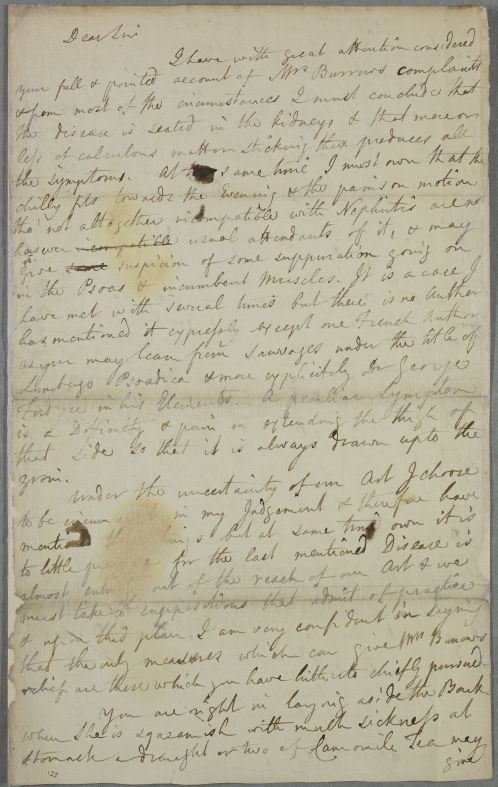 Dear Sir
I have with great attention considered
your full & pointed account of Mrs Burrows complaints
& from most of the circumstances I must conclude that
the disease is seated in the kidneys & that more or
less of calculous matter sticking there produces all
the symptoms. At same time I must own that the
chilly fits towards the Evening & the pains on motion
tho' not altogether incompatible with Nephritis are no
however incompatible usual attendants of it, & may
give some suspicion of some suppuration going on
in the Psoas & incumbent Muscles. It is a case I
have met with several times but there is no Author
has mentioned it expressly except one French Author
as you may learn from Sauvages under the title of
Lumbago Psoadica & more explicitly Dr George
Fordyce in his Elements. A peculiar Symptom
is a Difficulty & pain in extending the thigh of
that side so that it is always drawn up to the
groin.
Under the uncertainty of our Art I choose
to be in my Judgement & therefore have
but at same time own it is
to little for the last mentioned Disease is
almost out of the reach of our Art & we
must take suppositions that admit of practice
& upon this plan I am very confident in saying
that the only measures which can give Mrs Burrows
relief are those which you have hitherto chiefly pursued.
You are right in laying aside the Bark
when she is squeamish with much sickness at
stomach a draught or two of Camomile Tea may
give